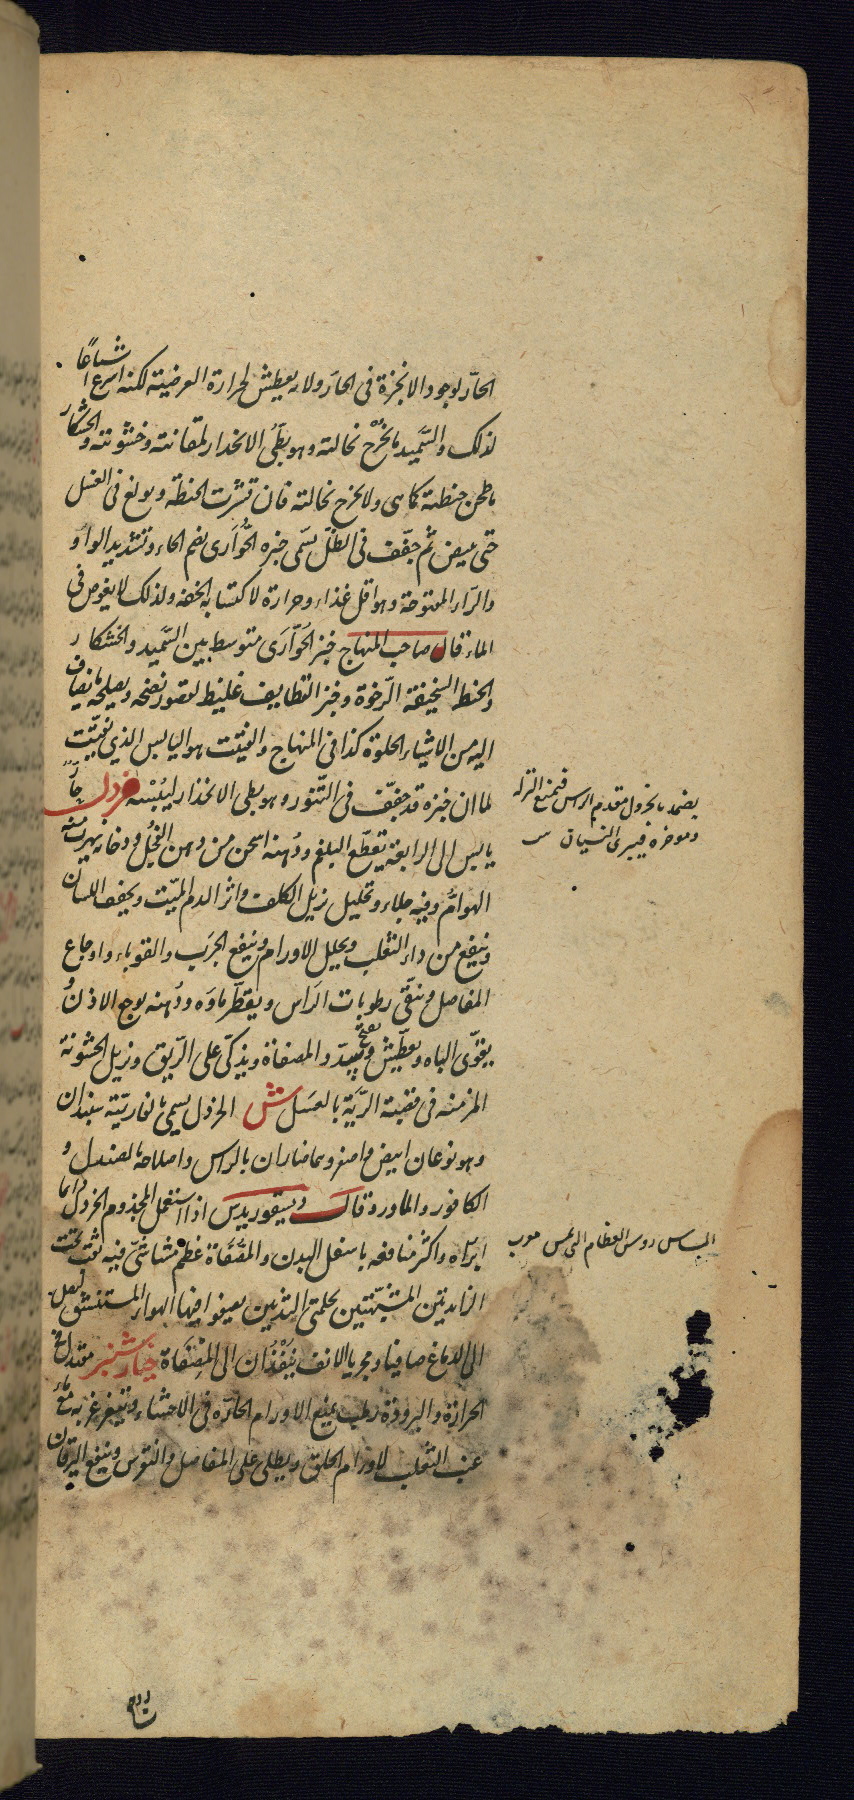 الحارّ لوجود الابخرة فى الحارّ ولانه يعطش لحرارة العرضيّة لكنه اسرع اشباعًا
لذلك والسَّميد ما يُخرَج نخالته وهو بطئ الانحدار لمتانته وخشونته والخشكار
ما طحن حنطته كما هى ولا يخرج نخالته فان قشرت الحنطة وبولغ فى الغسل
حتى يبيض ثم جفّف فى الظلّ يسمّى خبزه الحُوَّارَى بضم الحاء وتشديد الواو
والرّاء المفتوحة وهو اقل غذاء وحرارة لاكتسابه الخفة ولذلك لا يغوص فى
الماء قال صاحب المنهاج خبز الحُوَّارَى متوسط بين السَّميد والخشكار
والحنطة السخيفة الرّخوة وخبز القطايف غليظ لقصور نضجه ويصلحه ما يضاف
اليه من الاشياء الحلوة كذا فى المنهاج والفتيت هو اليابس الذى يفتّت
لما ان خبزه قد جفّف فى التّنور وهو بطى الانحذار ليُبْسه خردل حارّ
يابس الى الرابعة يقطّع البلغم ودُهنه اسخن من دهن الفجل ودخانه يهرب منه
الهوامّ وفيه جلاء وتحليل يزيل الكلف واثر الدم الميّت ويجفف اللسان
وينفع من داء الثعلب ويحلل الاورام وينفع الجرب والقوباء واوجاع
المفاصل وينقّى رطوبات الرَأس ويقطّر ماوه ودُهنه لوجع الاذن و
يقوّى الباه ويعطّش ويفتح سدد المصفاة ويذكّى على الرّيق ويزيل الخشونة
المزمنة فى قصبة الريّة بالعسل ش الخردل يسمى بالفارسيّة سبندان
وهو نوعان ابيض واصفر وهما ضاران بالراس واصلاحه بالصندل و
الكافور والماورد وقال ديسقوريدس اذا استعمل المجذوم الخردل دايما
ابرأه واكثر منافعه باسفل البدن والمِصْفَاة عَظم مُشَاشىّ فيه ثقب تحت
الزايدتين المشبّهتين بحلمتى الثديين يصفو فيها الهواء المستنشق ليصل
الى الدماغ صافيا ومجريا الانف يَنفُذان الى المِصْفَاة خيارشنبر معتدل فى
الحرارة والبرودة رطب ينفع الاورام الحارّة فى الاحشاء ويتغرغر به مع ماء
عنب الثعلب لاورام الحلق ويطلى على المفاصل والنقرس وينفع اليرقان
يضمد بالخردل مقدم الراس فيمنع النزلة
وموخره فيبرى النسيان
المشاش روس العظام التى